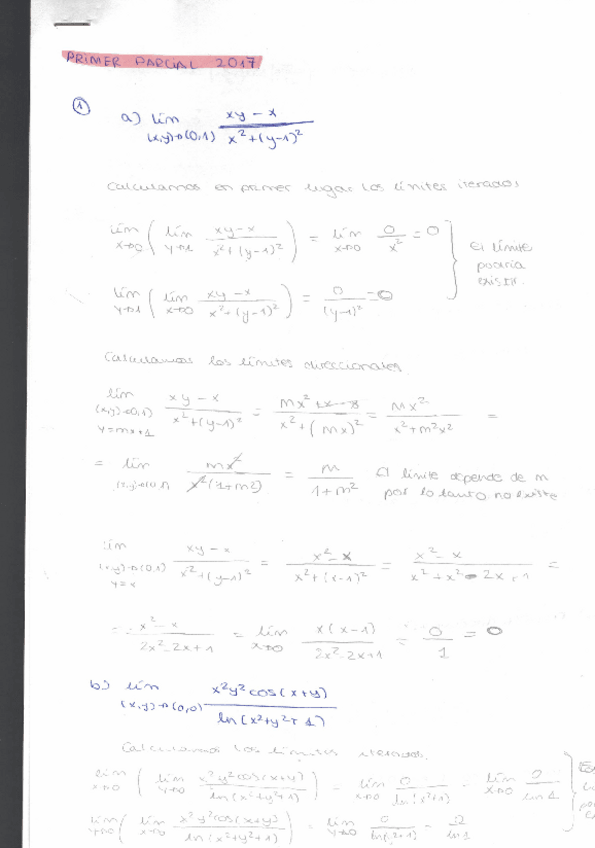 PRIMER PARCIAL 2017
① a) lím (x,y)→(0,1) xy - x / x²+(y-1)²
Calculamos en primer lugar los límites iterados
lím x→0 ( lím y→1 xy-x / x²+(y-1)² ) = lím x→0 0 / x² = 0
lím y→1 ( lím x→0 xy-x / x²+(y-1)² ) = 0 / (y-1)² = 0
El límite
podría
existir.
Calculamos los límites direccionales.
lím (x,y)→(0,1) y=mx+1 xy-x / x²+(y-1)² = mx²+x-x / x²+(mx)² = mx² / x²+m²x² =
= lím (x,y)→(0,1) mx² / x²(1+m²) = m / 1+m² El límite depende de m
por lo tanto no existe
lím (x,y)→(0,1) y=x xy-x / x²+(y-1)² = x²-x / x²+(x-1)² = x²-x / x²+x²-2x+1 =
= x²-x / 2x²-2x+1 = lím x→0 x(x-1) / 2x²-2x+1 = 0 / 1 = 0
b) lím (x,y)→(0,0) x²y²cos(x+y) / ln(x²+y²+1)
Calculamos los límites iterados.
lím x→0 ( lím y→0 x²y²cos(x+y) / ln(x²+y²+1) ) = lím x→0 0 / ln(x²+1) = lím x→0 0 / ln 1
lím y→0 ( lím x→0 x²y²cos(x+y) / ln(x²+y²+1) ) = lím y→0 0 / = / ln 1